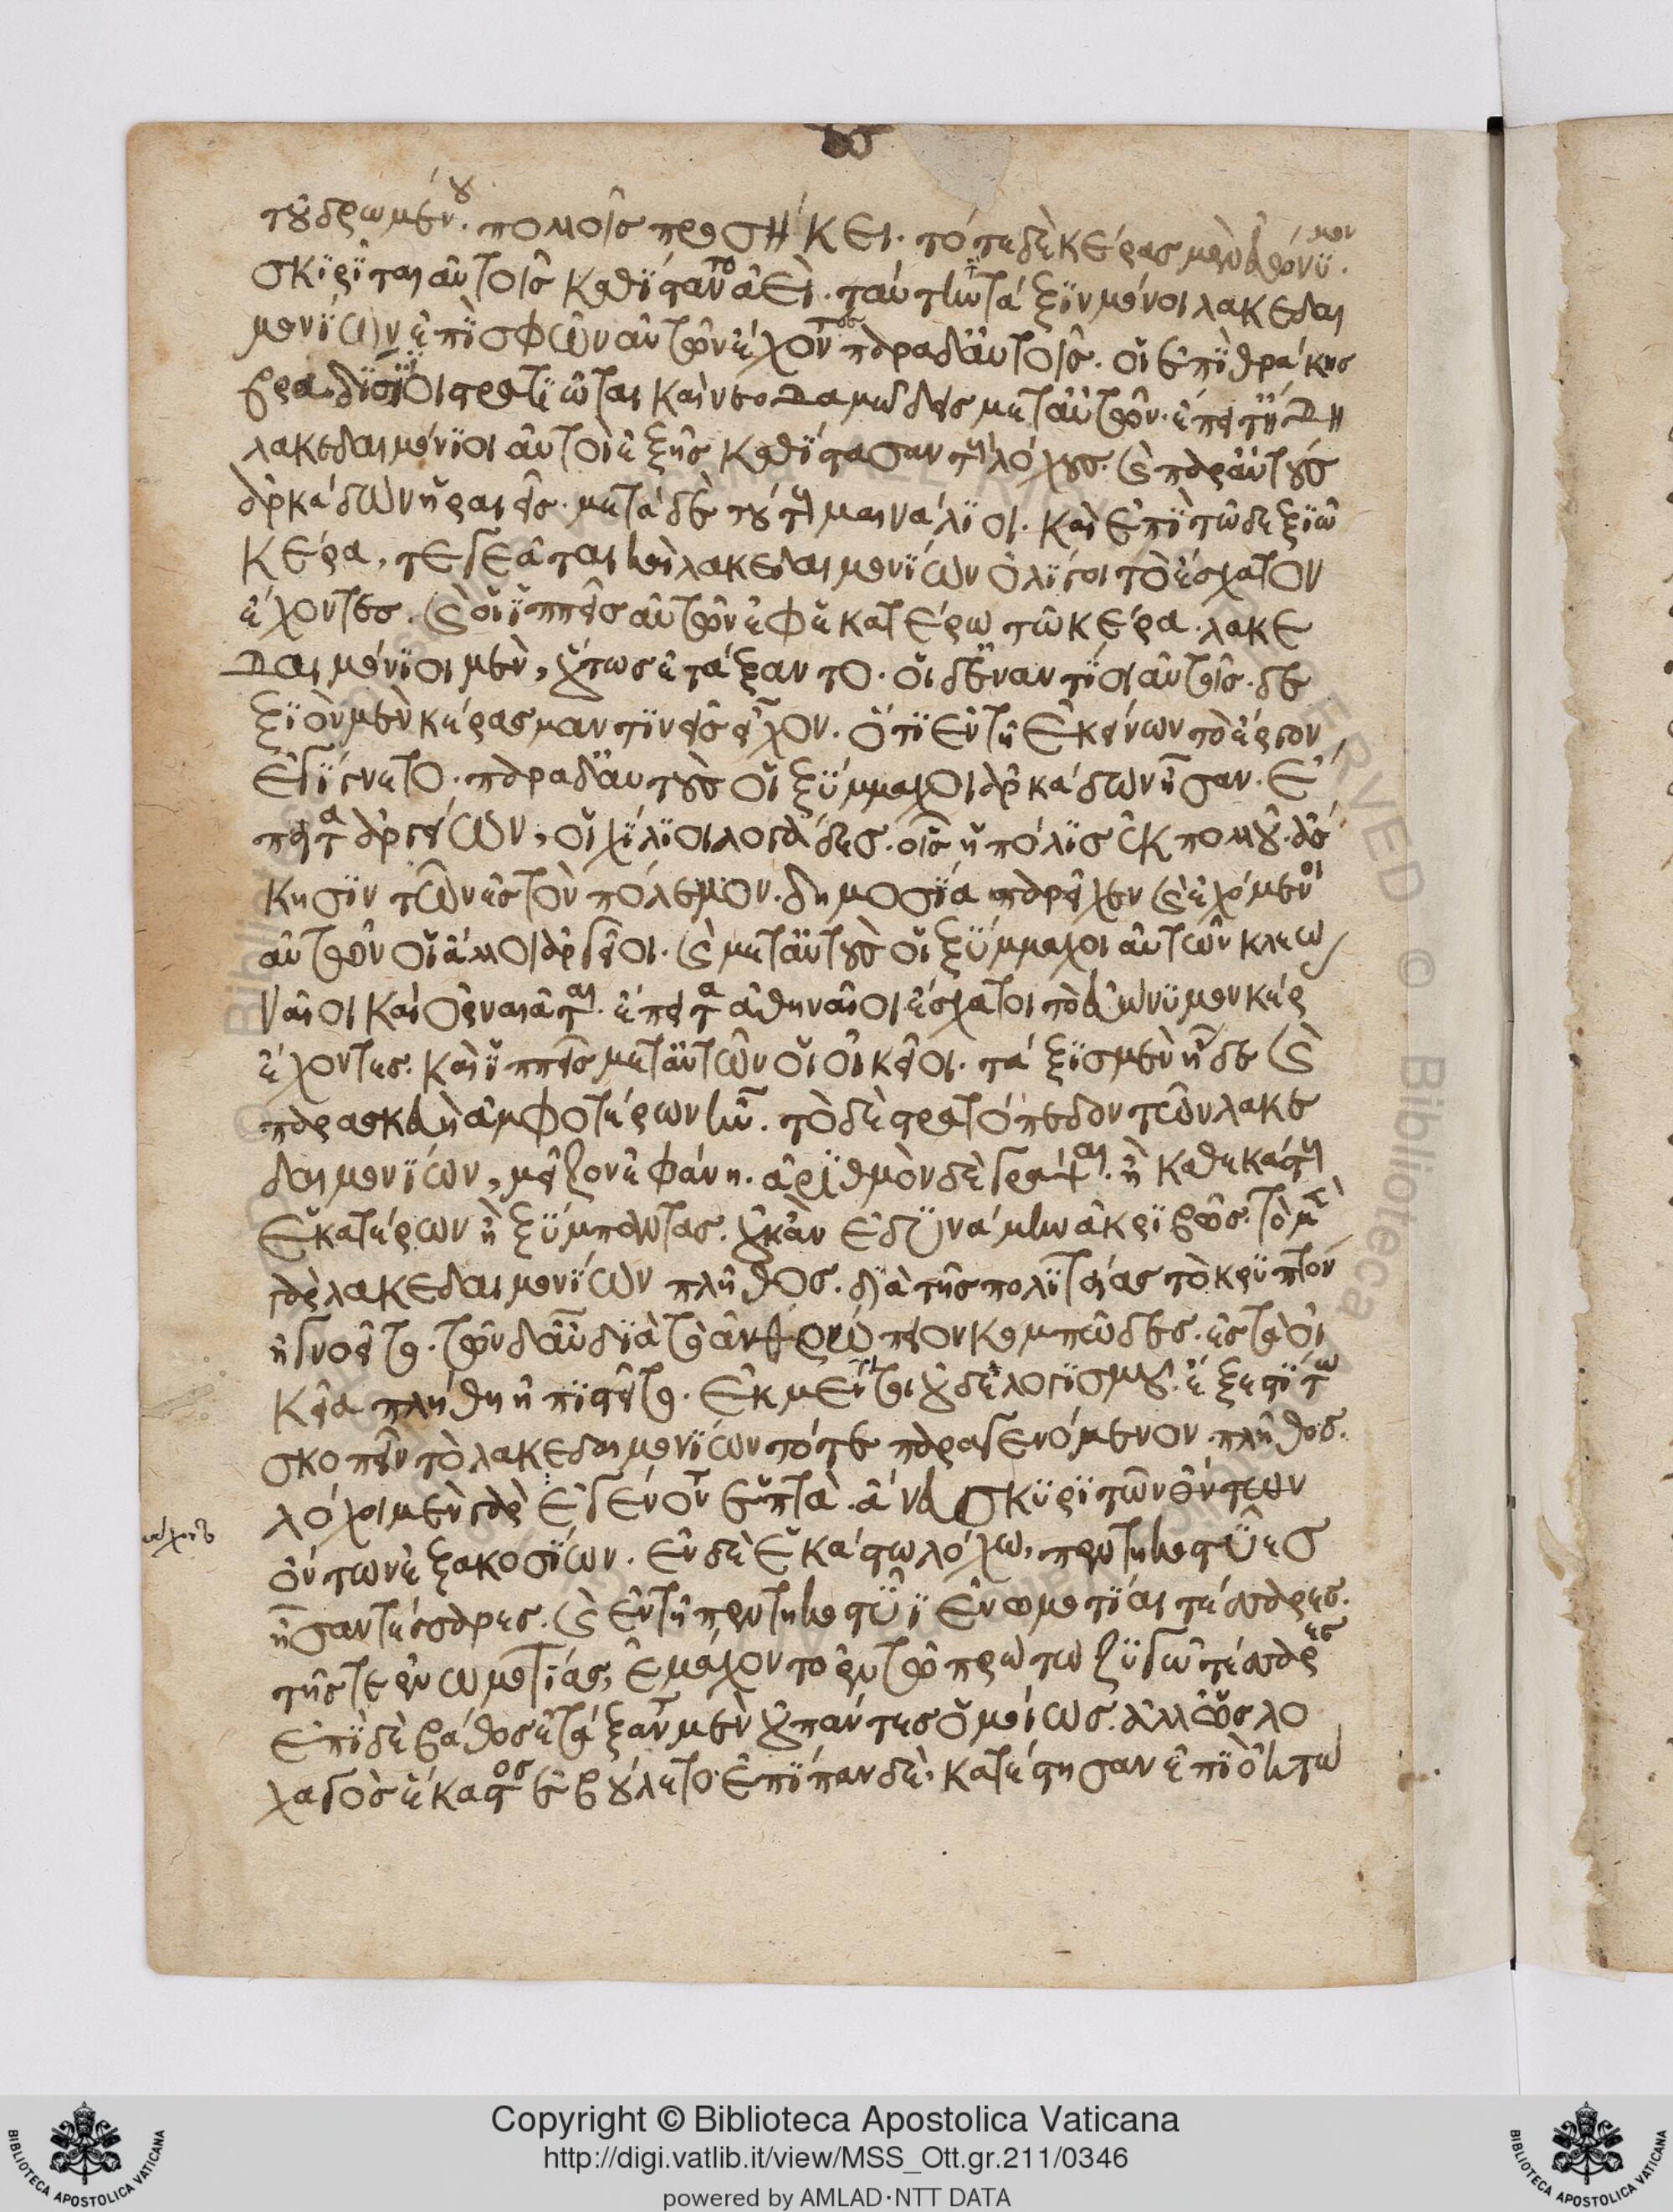 τοῦ δρωμένου. πολλοῖς προσήκει. τότε δὲ κέρας μὲν εὐώνυμον
σκιρῖται αὐτοῖς καθίσταντο ἀεὶ. ταύτην τάξιν μόνοι λακεδαι
μονίων ἐπὶ σφῶν αὐτῶν ἔχοντες παρὰ δ' αὐτοῖς. οἱ ἐπὶ θράκης
βρασίδειοι στρατιῶται καὶ νεοδαμώδεις μετ' αὐτῶν. ἔπειτ' ἤδη
λακεδαιμόνιοι αὐτοὶ ἑξῆς καθίστασαν τοὺς λόχους. καὶ παρ' αὐτοὺς
ἀρκάδων ἡραιεῖς. μετὰ δὲ τούτους μαινάλιοι. καὶ ἐπὶ τῶ δεξιῶ
κέρα, τεγεᾶται καὶ λακεδαιμονίων ὀλίγοι τὸ ἔσχατον
ἔχοντες. καὶ οἱ ἱππεῖς αὐτῶν ἐφ' ἑκατέρω τῶ κέρα. λακε
δαιμόνιοι μὲν, οὕτως ἐτάξαντο. οἱ δ' ἐναντίοι αὐτοῖς. δε
ξιὸν μὲν κέρας μαντινεῖς εἶχον. ὅτι ἐν τῆ ἐκείνων τὸ ἔργον
ἐγίγνετο. παρὰ δ' αὐτοὺς οἱ ξύμμαχοι ἀρκάδων ἦσαν. ἔ
πειτα ἀργείων, οἱ χίλιοι λογάδες. οἷς ἡ πόλις ἐκ πολλοῦ. ἄσ
κησιν τῶν ἐς τὸν πόλεμον. δημοσία παρεῖχεν καὶ ἐχόμενοι
αὐτῶν οἱ ἄλλοι ἀργεῖοι. καὶ μετ' αὐτοὺς οἱ ξύμμαχοι αὐτῶν κλεω
ναῖοι καὶ ὀρνεᾶται. ἔπειτα ἀθηναῖοι ἔσχατοι τὸ εὐώνυμον κέρ
ἔχοντες. καὶ ἱππεῖς μετ' αὐτῶν οἱ οἰκεῖοι. τάξις μὲν ἥδε καὶ
παρασκευὴ ἀμφοτέρων ἦν. τὸ δὲ στρατόπεδον τῶν λακε
δαιμονίων, μεῖζον ἐφάνη. ἀριθμὸν δὲ γράψαι. ἢ καθ' ἑκάστους
ἑκατέρων ἢ ξύμπαντας. οὐκ ἂν ἐδυνάμην ἀκριβῶς. τὸ μὲν
γὰρ λακεδαιμονίων πλῆθος. διὰ τῆς πολιτείας τὸ κρυπτὸν
ἠγνοεῖτο. τῶν δ' αὖ διὰ τὸ ἀνθρώπειον κομπῶδες. ἐς τὰ οἰ
κεῖα πλήθη ἠπιστεῖτο. ἐκ μέντοι τοιοῦδε λογισμοῦ. ἔξεστί τω
σκοπεῖν τὸ λακεδαιμονίων τότε παραγενόμενον πλῆθος.
λόχοι μὲν γὰρ ἐγένοντο ἑπτὰ. ἄνευ σκυριτῶν ὄντων
ὄντων ἑξακοσίων. ἐν δὲ ἑκάστω λόχω, πεντηκοστύες
ἦσαν τέσσαρες. καὶ ἐν τῆ πεντηκοστύϊ ἐνωμοτίαι τέσσαρες.
τῆς τε ἐνωμοτίας, ἐμάχοντο ἐν τῶ πρώτω ζυγῶ τέσσαρες
ἐπὶ δὲ βάθος ἐτάξαντο μὲν οὐ πάντες ὁμοίως. ἀλλ' ὡς λο
χαγὸς ἕκαστος ἐβούλετο. ἐπίπαν δὲ, κατέστησαν ἐπὶ ὀκτὼ
Copyright © Biblioteca Apostolica Vaticana
http://digi.vatlib.it/view/MSS_Ott.gr.211/0346
powered by AMLAD·NTT DATA
BIBLIOTECA APOSTOLICA VATICANA
BIBLIOTECA APOSTOLICA VATICANA